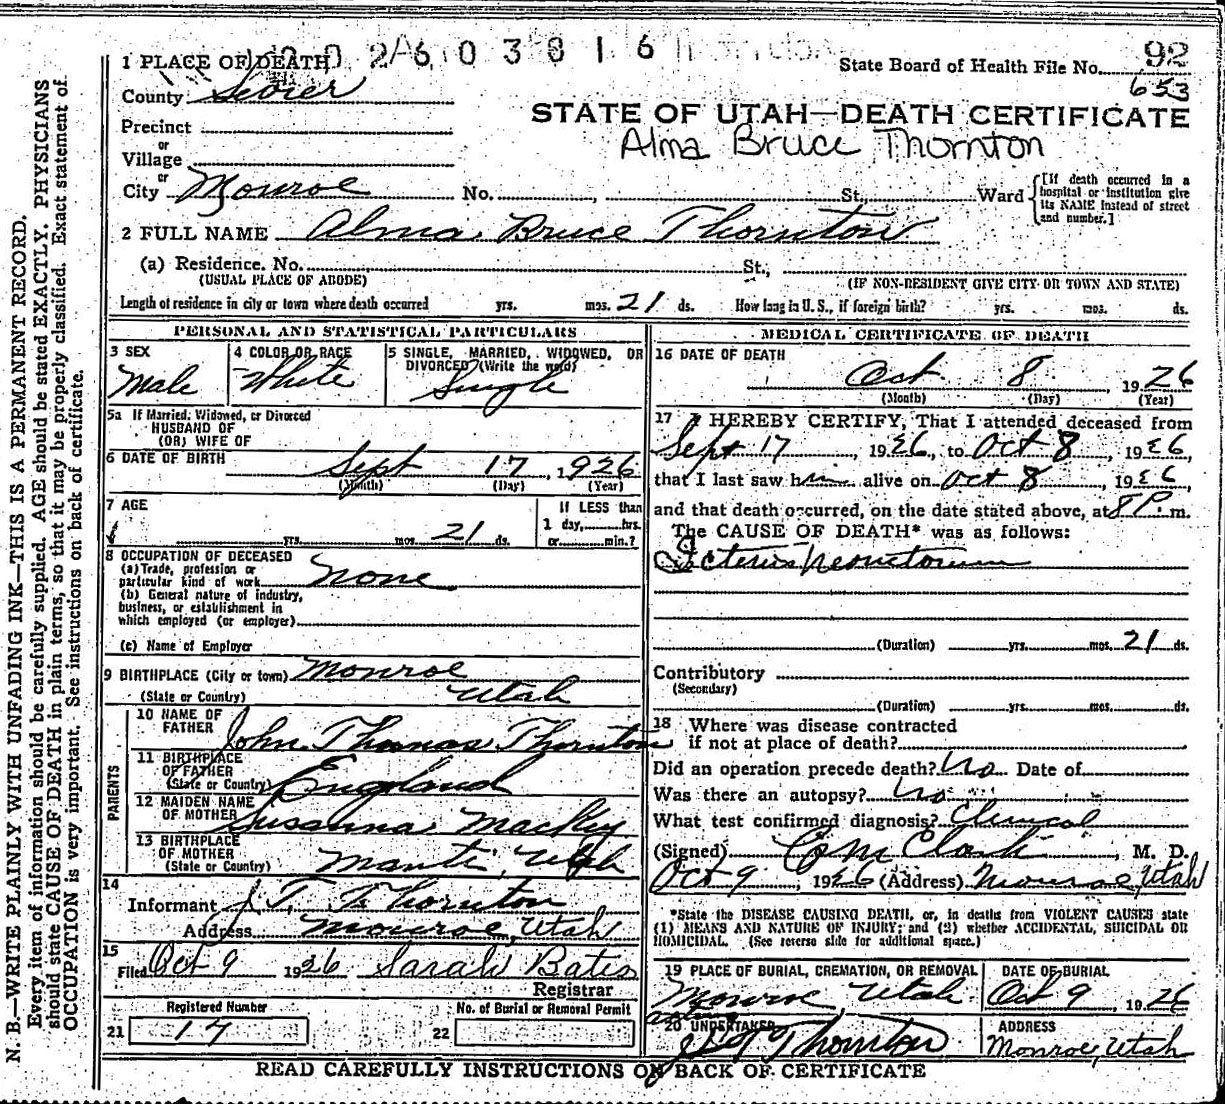 2 6 0 3 8 1 6
92
1 PLACE OF DEATH
State Board of Health File No.
653
County Sevier
STATE OF UTAH—DEATH CERTIFICATE
Precinct
Alma Bruce Thornton
or
Village
or
City Monroe No. , St., Ward
[If death occurred in a hospital or institution give its NAME instead of street and number.]
2 FULL NAME Alma Bruce Thornton
(a) Residence. No. St.,
(USUAL PLACE OF ABODE) (IF NON-RESIDENT GIVE CITY OR TOWN AND STATE)
Length of residence in city or town where death occurred yrs. mos. 21 ds. How long in U. S., if foreign birth? yrs. mos. ds.
PERSONAL AND STATISTICAL PARTICULARS
3 SEX
Male
4 COLOR OR RACE
White
5 SINGLE, MARRIED, WIDOWED, OR
DIVORCED (Write the word)
Single
5a If Married, Widowed, or Divorced
HUSBAND OF
(OR) WIFE OF
6 DATE OF BIRTH Sept 17 1926
(Month) (Day) (Year)
7 AGE
yrs. mos. 21 ds.
If LESS than
1 day, hrs.
or min.?
8 OCCUPATION OF DECEASED
(a) Trade, profession or
particular kind of work None
(b) General nature of industry,
business, or establishment in
which employed (or employer)
(c) Name of Employer
9 BIRTHPLACE (City or town) Monroe
(State or Country) Utah
PARENTS
10 NAME OF
FATHER John Thomas Thornton
11 BIRTHPLACE
OF FATHER
(State or Country) England
12 MAIDEN NAME
OF MOTHER Susanna Mackey
13 BIRTHPLACE
OF MOTHER
(State or Country) Manti, Utah
14
Informant J. T. Thornton
Address Monroe, Utah
15
Filed Oct 9 1926 Sarah Bates
Registrar
Registered Number
21 17
No. of Burial or Removal Permit
22
MEDICAL CERTIFICATE OF DEATH
16 DATE OF DEATH
Oct 8, 1926
(Month) (Day) (Year)
17 I HEREBY CERTIFY, That I attended deceased from
Sept 17, 1926, to Oct 8, 1926,
that I last saw him alive on Oct 8, 1926,
and that death occurred, on the date stated above, at 8 P. m.
The CAUSE OF DEATH* was as follows:
Icterus Neonetorum
(Duration) yrs. mos. 21 ds.
Contributory
(Secondary)
(Duration) yrs. mos. ds.
18 Where was disease contracted
if not at place of death?
Did an operation precede death? No Date of
Was there an autopsy? No
What test confirmed diagnosis? Clinical
(Signed) Clark, M. D.
Oct 9, 1926 (Address) Monroe, Utah
*State the DISEASE CAUSING DEATH, or, in deaths from VIOLENT CAUSES state
(1) MEANS AND NATURE OF INJURY; and (2) whether ACCIDENTAL, SUICIDAL OR
HOMICIDAL. (See reverse side for additional space.)
19 PLACE OF BURIAL, CREMATION, OR REMOVAL
Monroe Utah
DATE OF BURIAL
Oct 9 1926
acting
20 UNDERTAKER
J T Thornton
ADDRESS
Monroe, Utah
READ CAREFULLY INSTRUCTIONS ON BACK OF CERTIFICATE
N. B.—WRITE PLAINLY WITH UNFADING INK—THIS IS A PERMANENT RECORD.
Every item of information should be carefully supplied. AGE should be stated EXACTLY. PHYSICIANS
should state CAUSE OF DEATH in plain terms, so that it may be properly classified. Exact statement of
OCCUPATION is very important. See instructions on back of certificate.